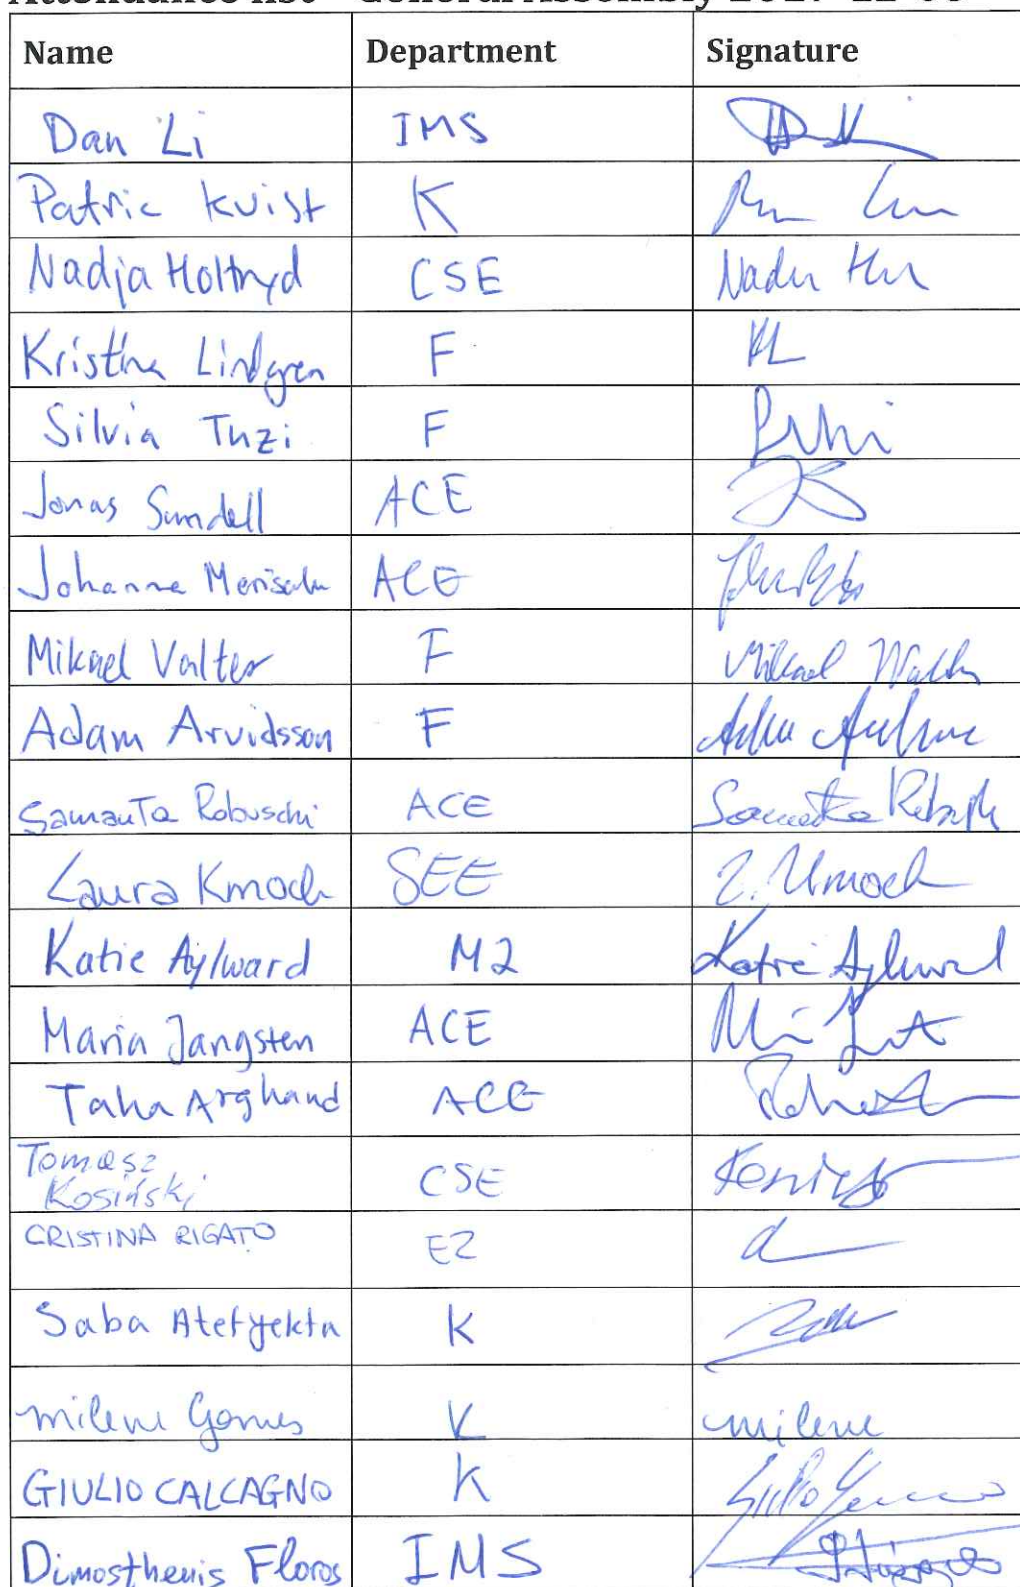 Attendance list - General Assembly 2017-12-06
Name Department Signature
Dan Li IMS
Patric Kvist K
Nadja Holtryd CSE
Kristina Lindgren F KL
Silvia Tuzi F
Jonas Sundell ACE
Johanna Merisalu ACE
Mikael Valter F Mikael Valter
Adam Arvidsson F
Samanta Robuschi ACE Samanta Robuschi
Laura Kmoch SEE L. Kmoch
Katie Aylward M2 Katie Aylward
Maria Jangsten ACE
Taha Arghand ACE
Tomasz
Kosiński CSE
CRISTINA RIGATO E2
Saba Atefyekta K
milene Gomes K milene
GIULIO CALCAGNO K
Dimosthenis Floros IMS